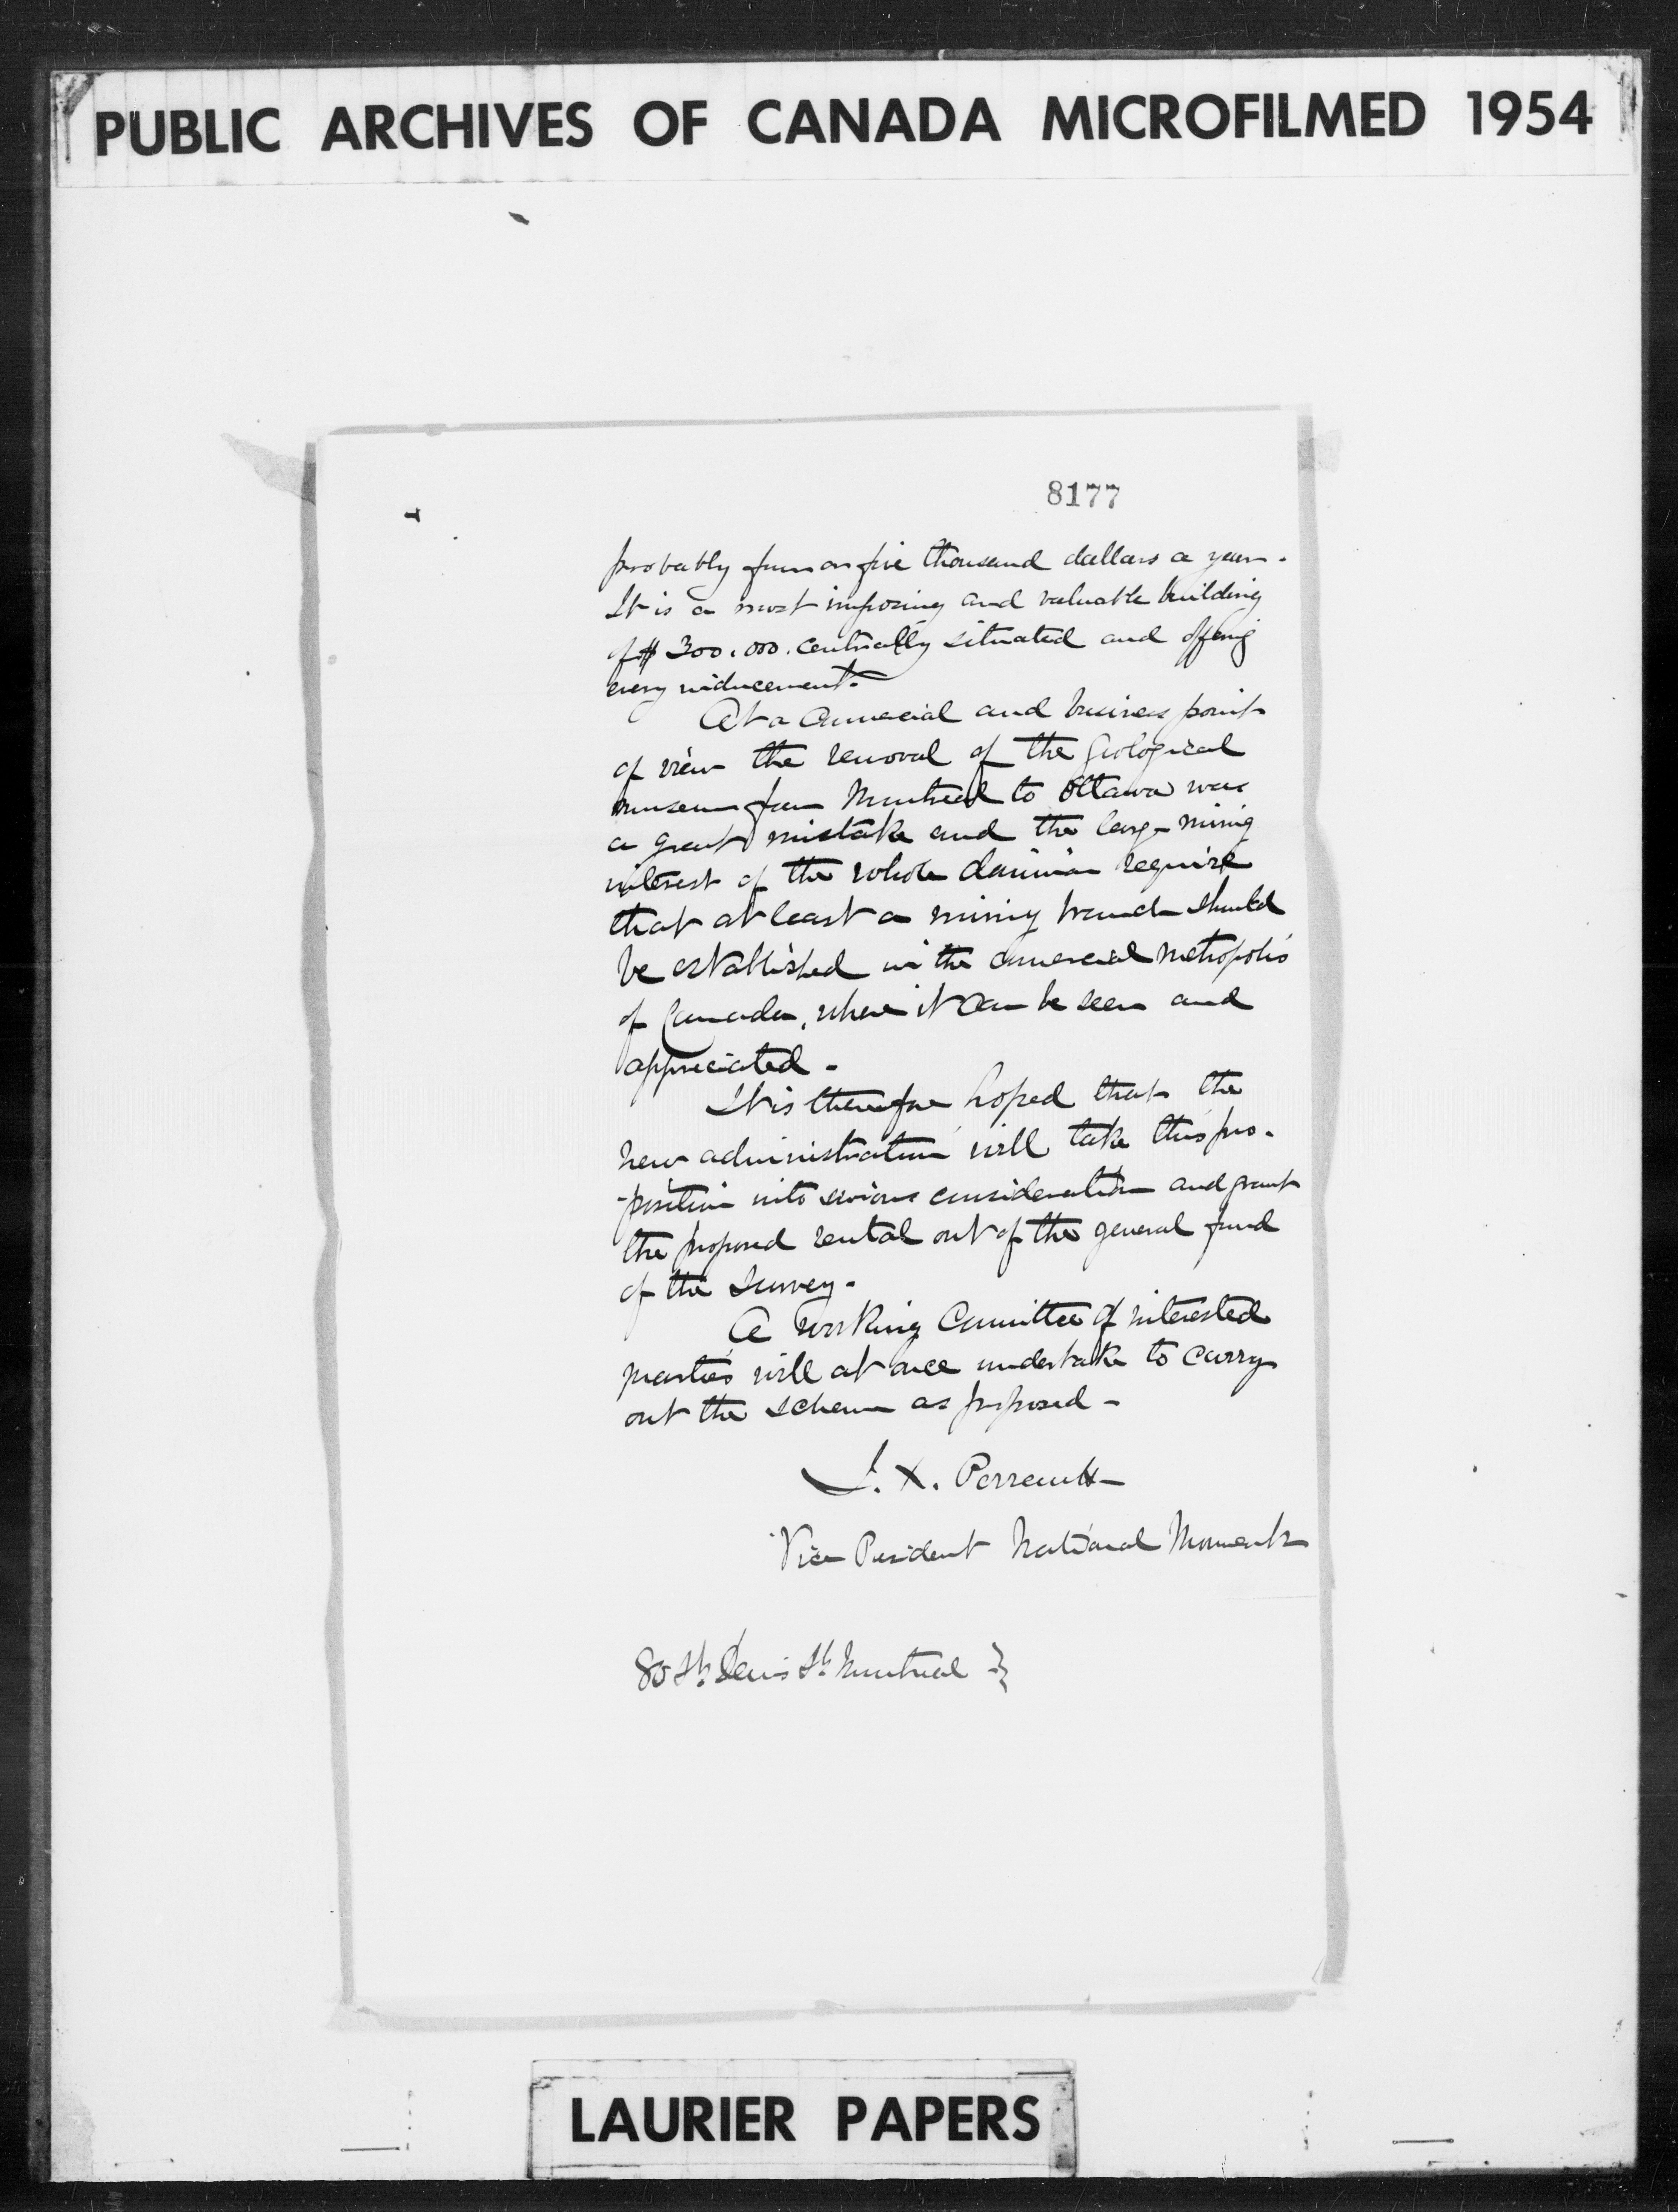 PUBLIC ARCHIVES OF CANADA MICROFILMED 1954
8177
probably four or five thousand dollars a year.
It is a most imposing and valuable building
of $300.000. centrally situated and offering
every inducement.
At a Commercial and business point
of view the removal of the Geological
museum from Montreal to Ottawa was
a great mistake and the large mining
interest of the whole dominion require
that at least a mining branch should
be established in the commercial metropolis
of Canada, where it can be seen and
appreciated -
It is therefore hoped that the
new administration will take this pro-
-position into serious consideration and grant
the proposed rental out of the general fund
of the Survey -
A working Committee of interested
parties will at once undertake to carry
out the scheme as proposed -
J. X. Perrault
Vice President National
80 St. Denis St. Montreal
LAURIER PAPERS